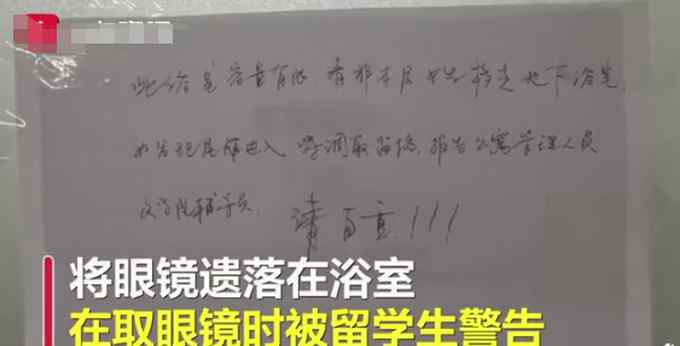 此浴室容量有限 若非本层 地下浴室
如若 进入 将调取监控,报告公寓管理人员
文学院辅导员.
请自重!!!
将眼镜遗落在浴室
在取眼镜时被留学生警告